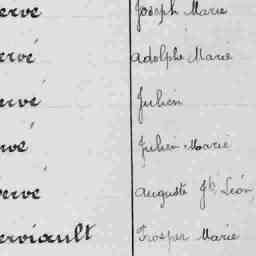 ervé Joseph Marie
ervé Adolphe Marie
ervé Julien
rvé Julien Marie
ervé Auguste Jh Léon
erviault Prosper Marie